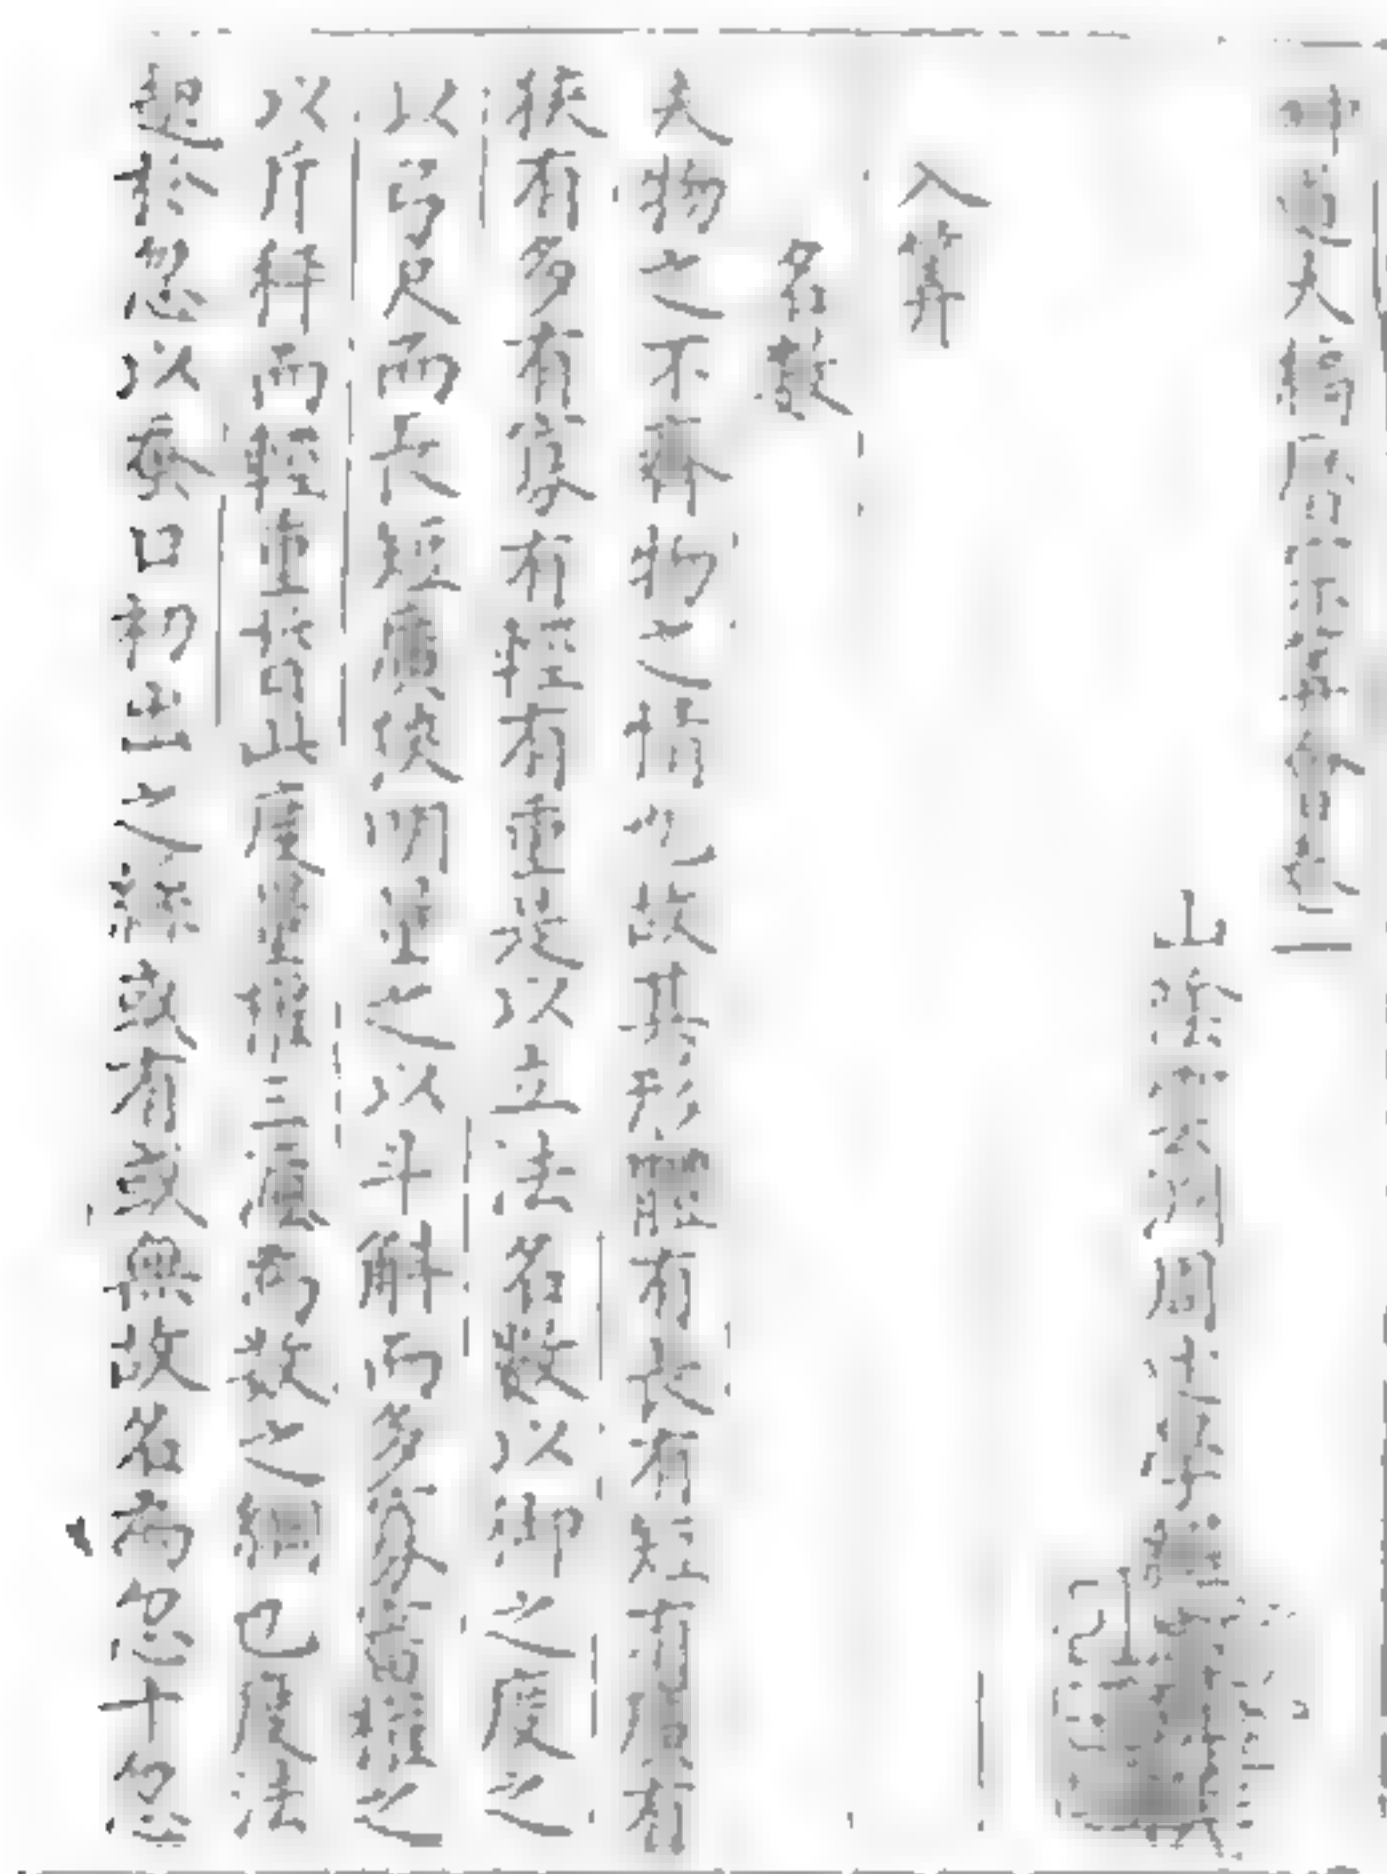 神道大編曆宗算會卷一
山陰雲淵周述學
入算
名數
夫物之不齊物之情也故其形體有長有短有廣有
狹有多有寡有輕有重是以立法名數以御之度之
以弓尺而長短廣狹明量之以斗斛而多寡當權之
以斤秤而輕重皆此度量權三源為數之綱也度法
起於忽以蚕口初出之絲或有或無故名為忽十忽